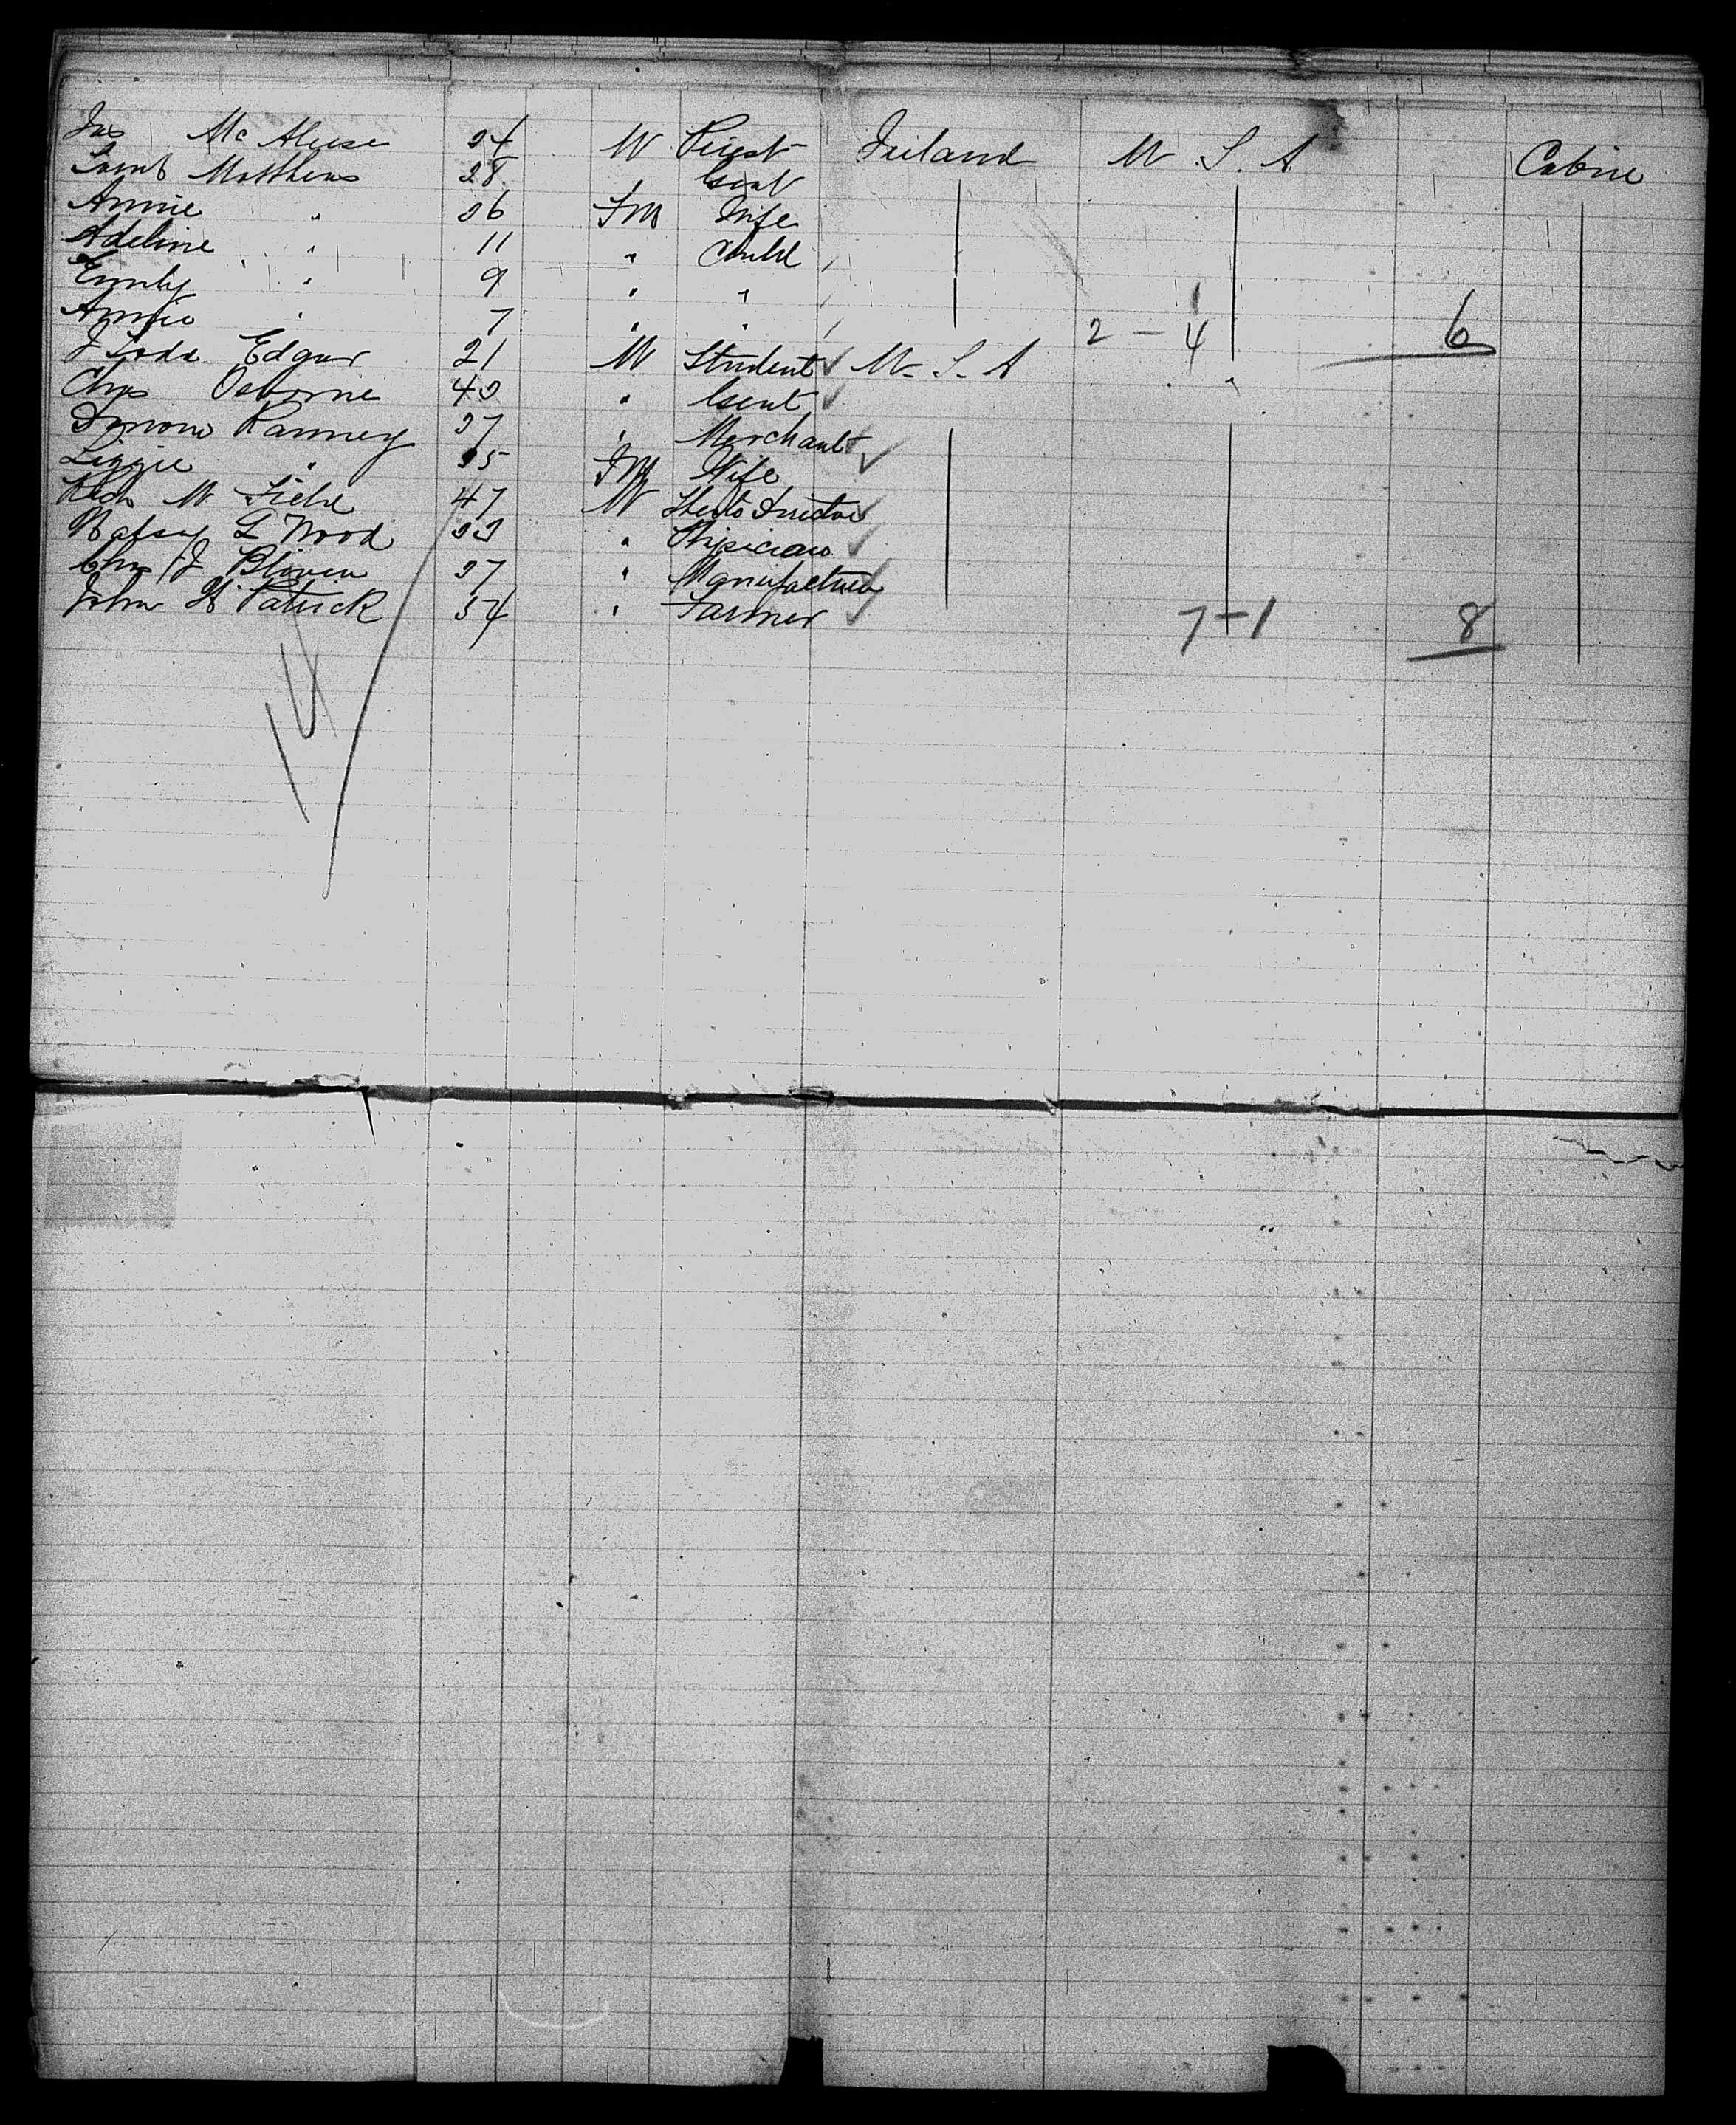 Jas Mc Aleese 24 M Priest Ireland U. S. A Cabin
Saml Matthews 28 " Gent
Annie " 26 Fm Wife
Adeline " 11 " Child
Emily " 9 " "
Annie " 7 " " 2 - 4 6
J Todd Edgar 21 M Student U. S. A "
Chas Osborne 40 " Gent
Ranney 37 " Merchant
Lizzie " 35 Fm Wife
M 47 M
G Wood 33 " Physician
Chas J Bliven 37 " Manufacturer
John H Patrick 54 " Farmer 7-1 8
14